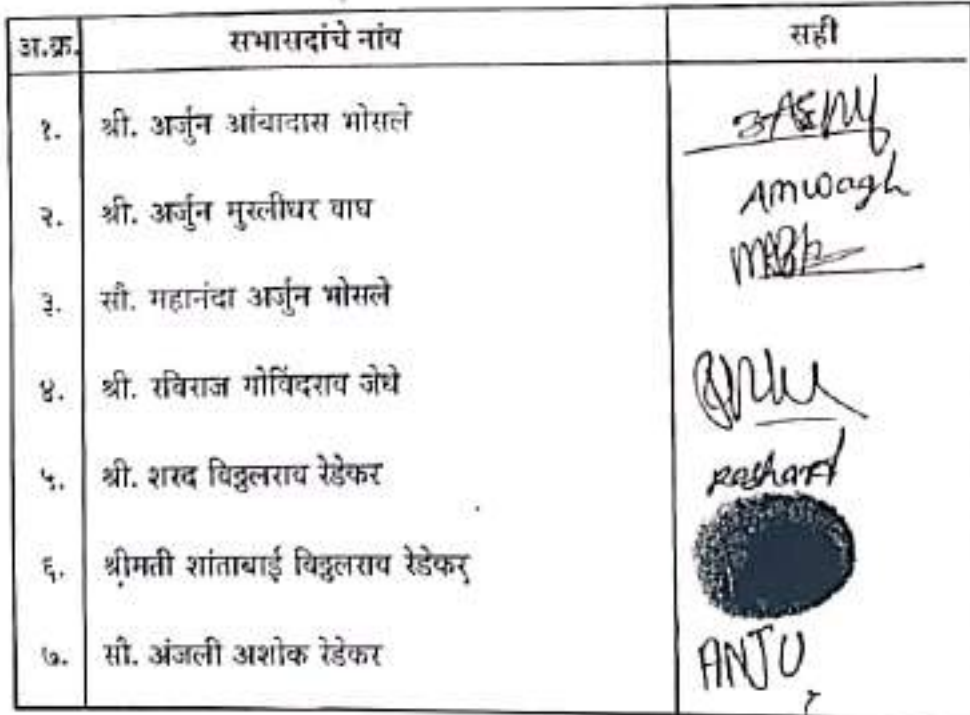 अ.क्र. सभासदांचे नांव सही
१. श्री. अर्जुन आंबादास भोसले
२. श्री. अर्जुन मुरलीधर वाघ Amwagh
३. सौ. महानंदा अर्जुन भोसले
४. श्री. रविराज गोविंदराव जेधे
५. श्री. शरद विठ्ठलराव रेडेकर
६. श्रीमती शांताबाई विठ्ठलराव रेडेकर
७. सौ. अंजली अशोक रेडेकर ANJU